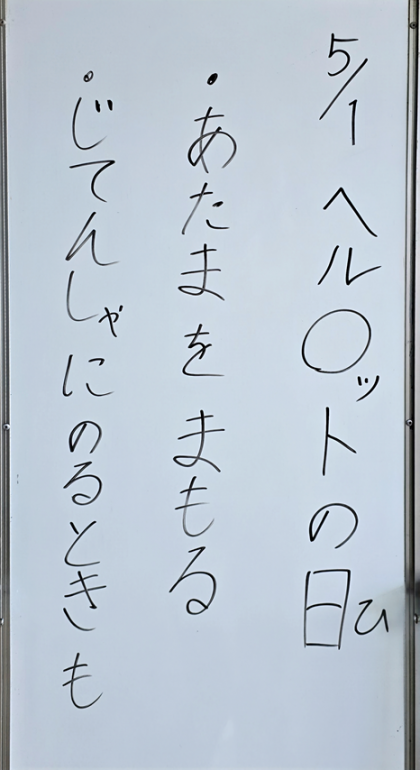 5/1 ヘル〇ットの日
ひ
・あたまをまもる
・じてんしゃにのるときも